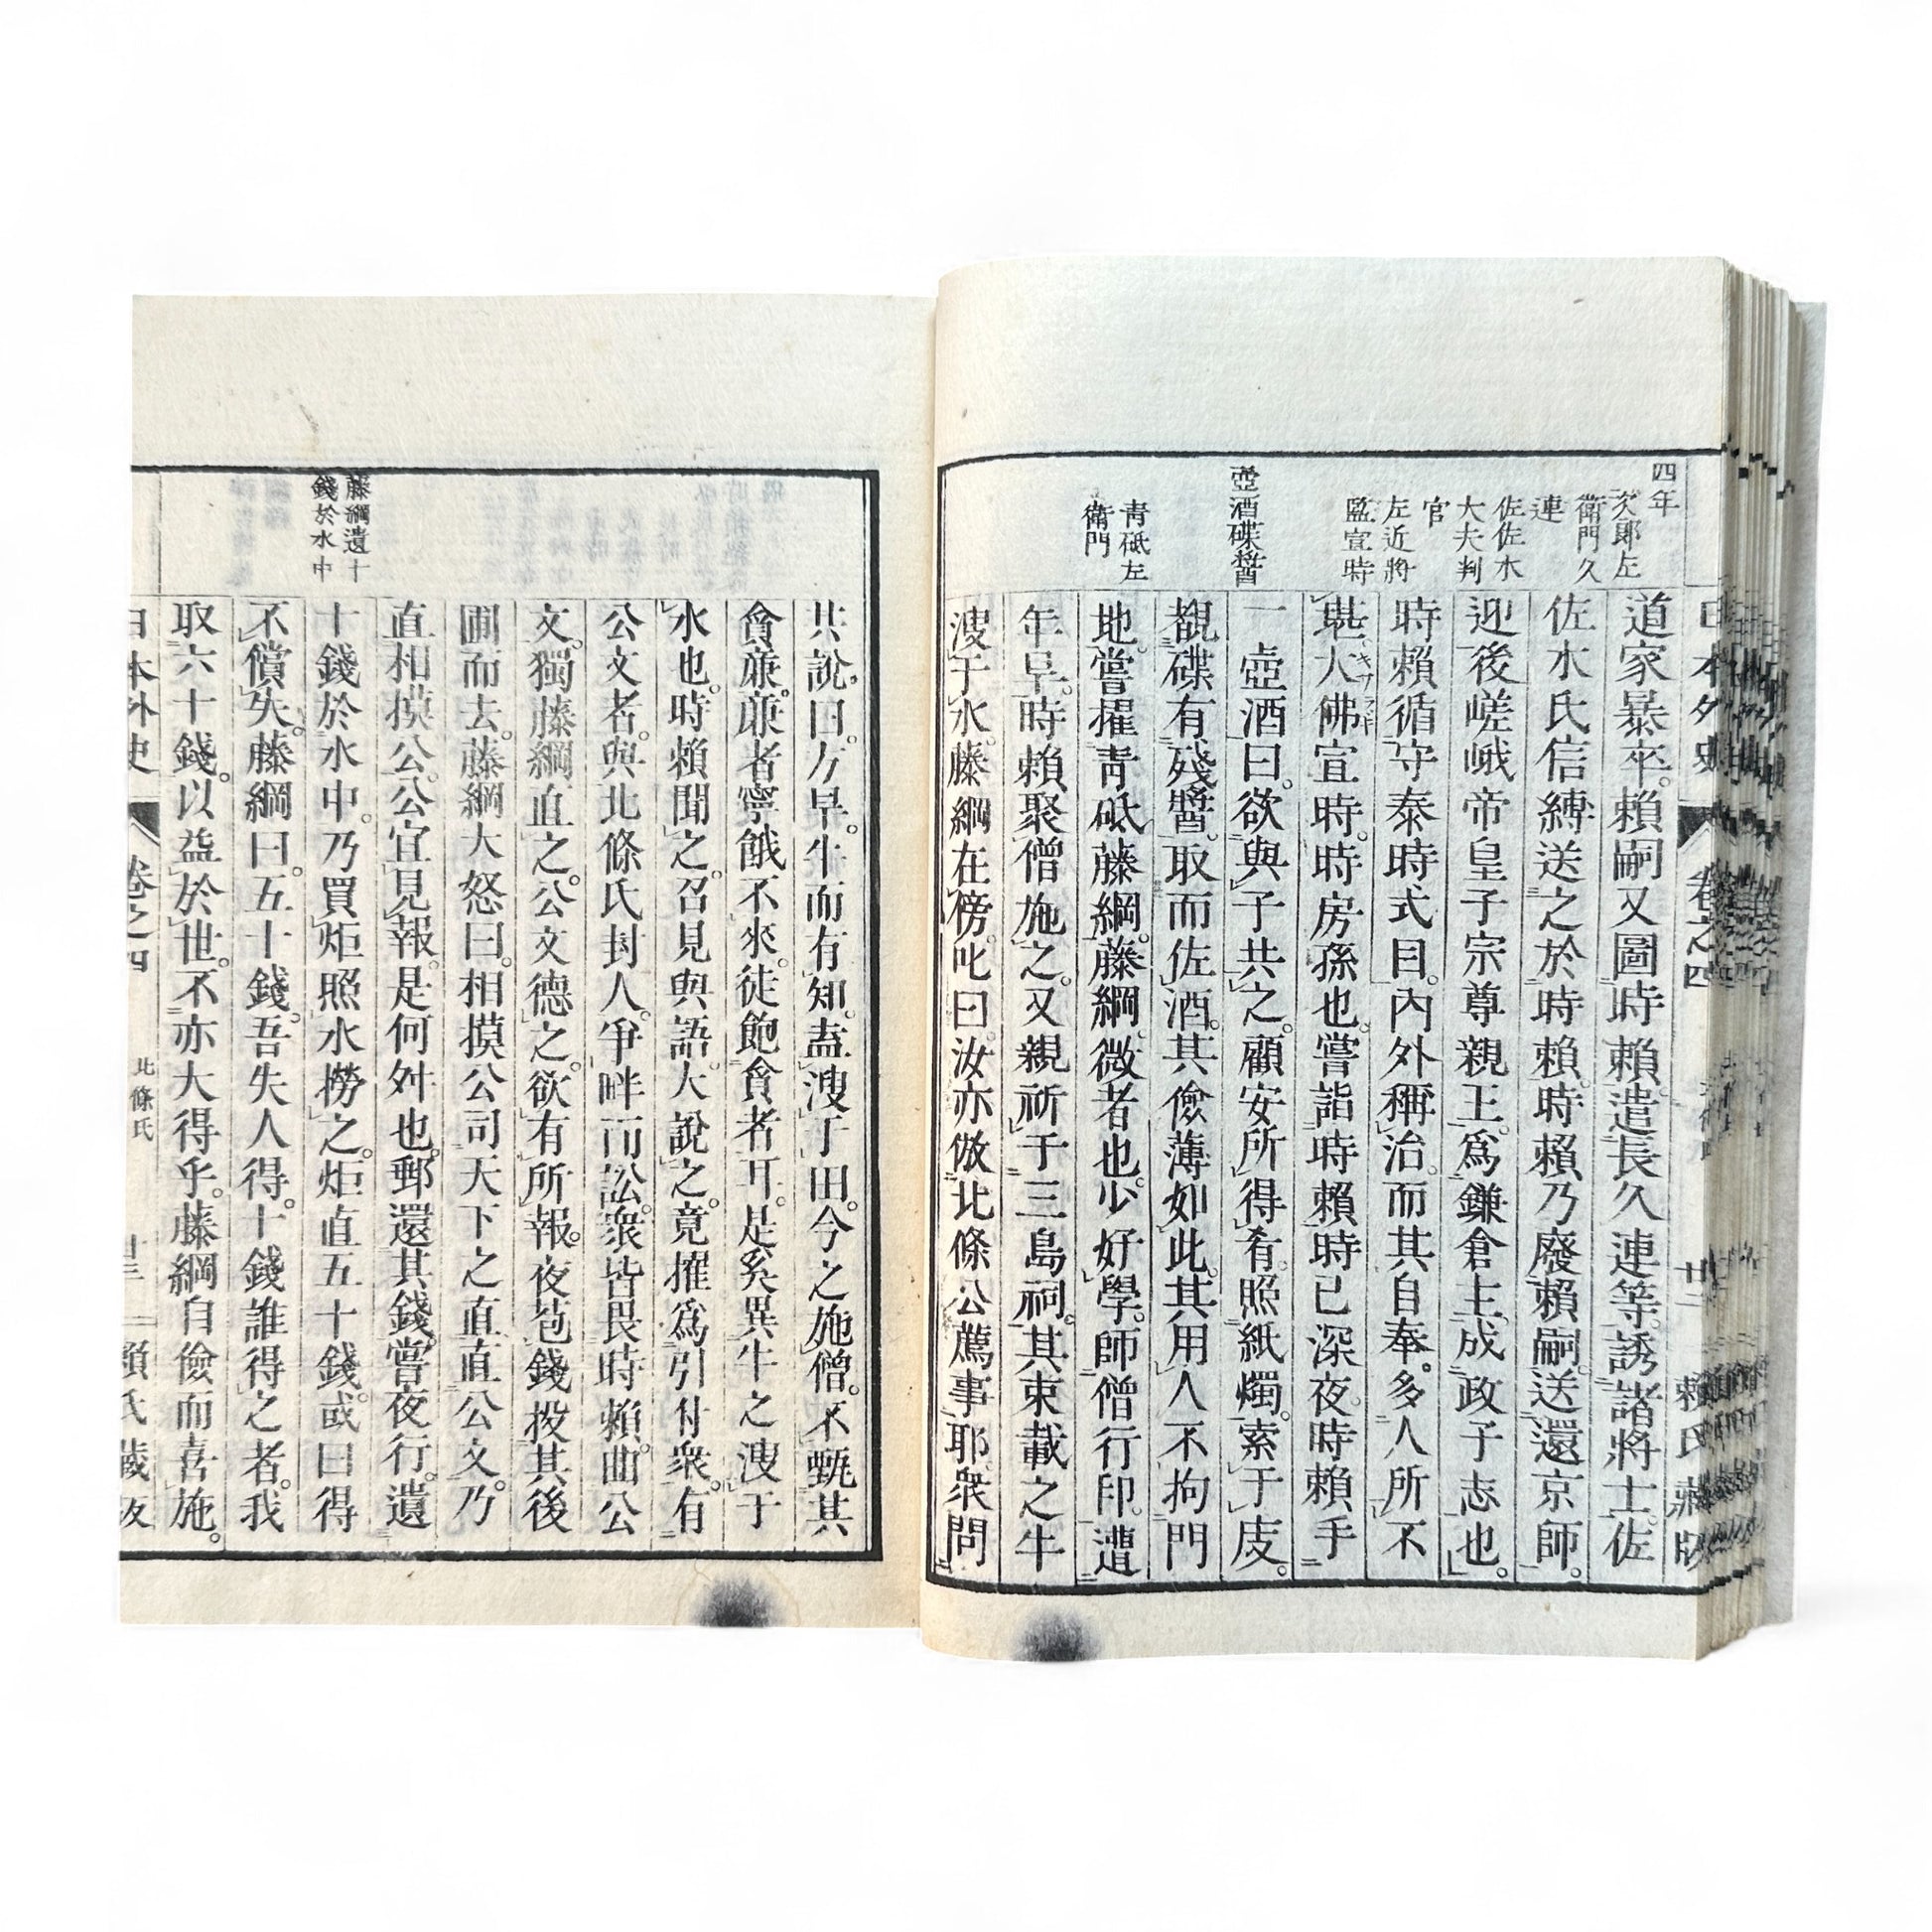 日本外史 卷之四 廿二 賴氏藏版
四年
次郎左
衛門久
連
佐佐木
大夫判
官
左近將
監宣時
壺酒碟醬
靑砥左
衛門
道家暴卒。賴嗣又圖時賴。遣長久連等。誘諸將士。佐
佐木氏信縛送之於時賴。時賴乃廢賴嗣。送還京師。
迎後嵯峨帝皇子宗尊親王。爲鎌倉主。成政子志也。
時賴循守泰時式目。內外稱治。而其自奉。多人所不
堪。大佛宣時。時房孫也。嘗詣時賴。時已深夜。時賴手
一壺酒曰。欲與子共之。顧安所得肴。照紙燭。索于庋。
覩碟有殘醬。取而佐酒。其儉薄如此。其用人不拘門
地。嘗擢靑砥藤綱。藤綱。微者也。少好學。師僧行印。遭
年旱。時賴聚僧施之。又親祈于三島祠。其束載之牛
溲于水。藤綱在傍。叱曰。汝亦倣北條公薦事耶。衆問
藤綱遺十
錢於水中
共說。曰。方旱。牛而有知。盍溲于田。今之施僧。不甄其
貪廉。廉者寧餓不來。徒飽貪者耳。是奚異牛之溲于
水也。時賴聞之。召見與語。大說之。竟擢爲引付衆。有
公文者。與北條氏封人。爭畔而訟。衆皆畏時賴。曲公
文。獨藤綱直之。公文德之。欲有所報。夜苞錢投其後
圃而去。藤綱大怒曰。相摸公司天下之直。直公文。乃
直相摸公。公宜見報。是何舛也。郵還其錢。嘗夜行。遺
十錢於水中。乃買炬照水撈之。炬直五十錢。或曰得
不償失。藤綱曰。五十錢。吾失人得。十錢誰得之者。我
取六十錢。以益於世。不亦大得乎。藤綱自儉而喜施。
日本外史 卷之四 北條氏 廿三 賴氏藏版